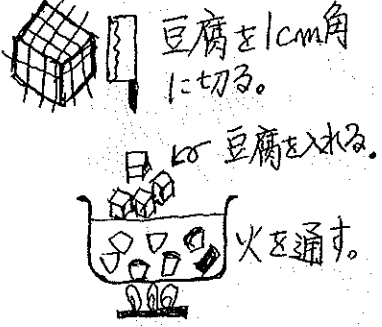 豆腐を1cm角
に切る。
豆腐を入れる。
火を通す。